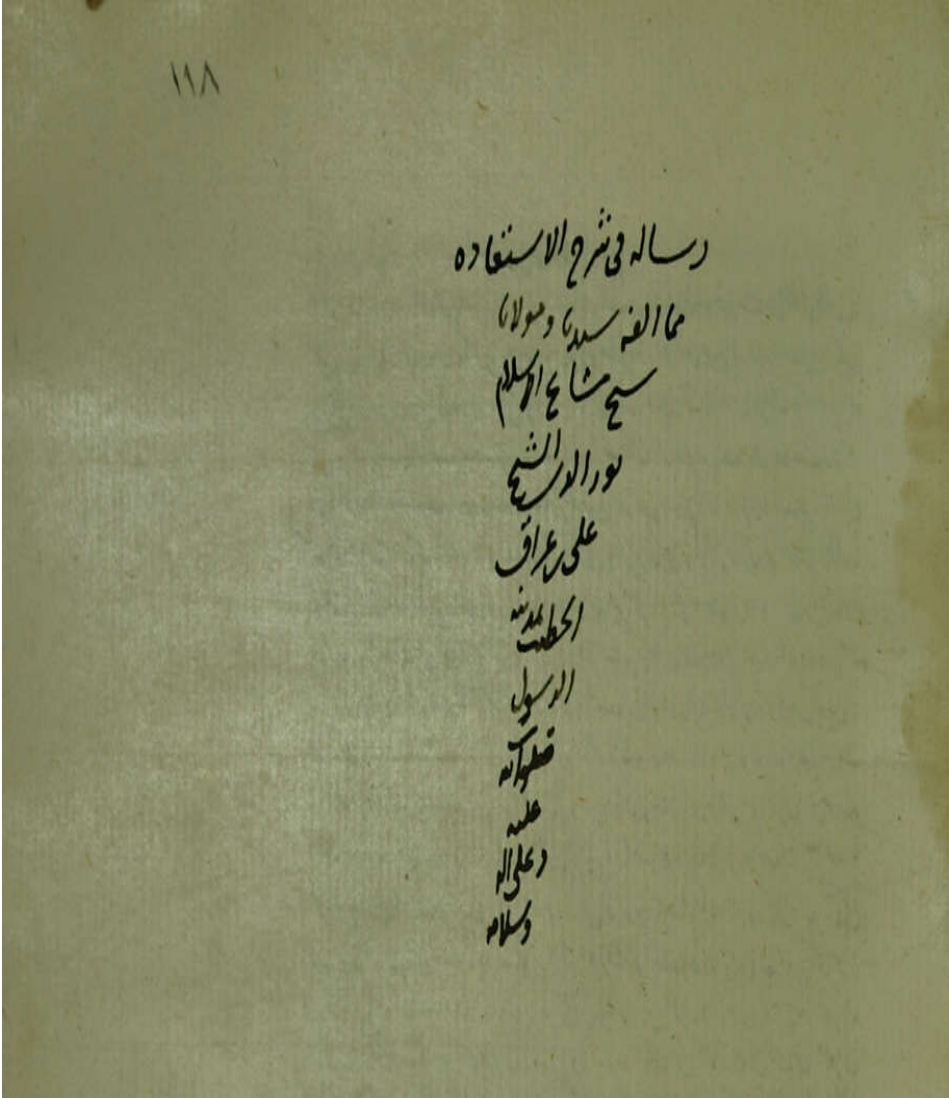 ١١٨
رساله فى شرح الاستعاده
مما الفه سيدنا ومولانا
شيخ مشايخ الاسلام
نور الدين الشيخ
على بن عراق
الخطيب بمدينة
الرسول
صلوات الله
عليه
وعلى اله
وسلامه